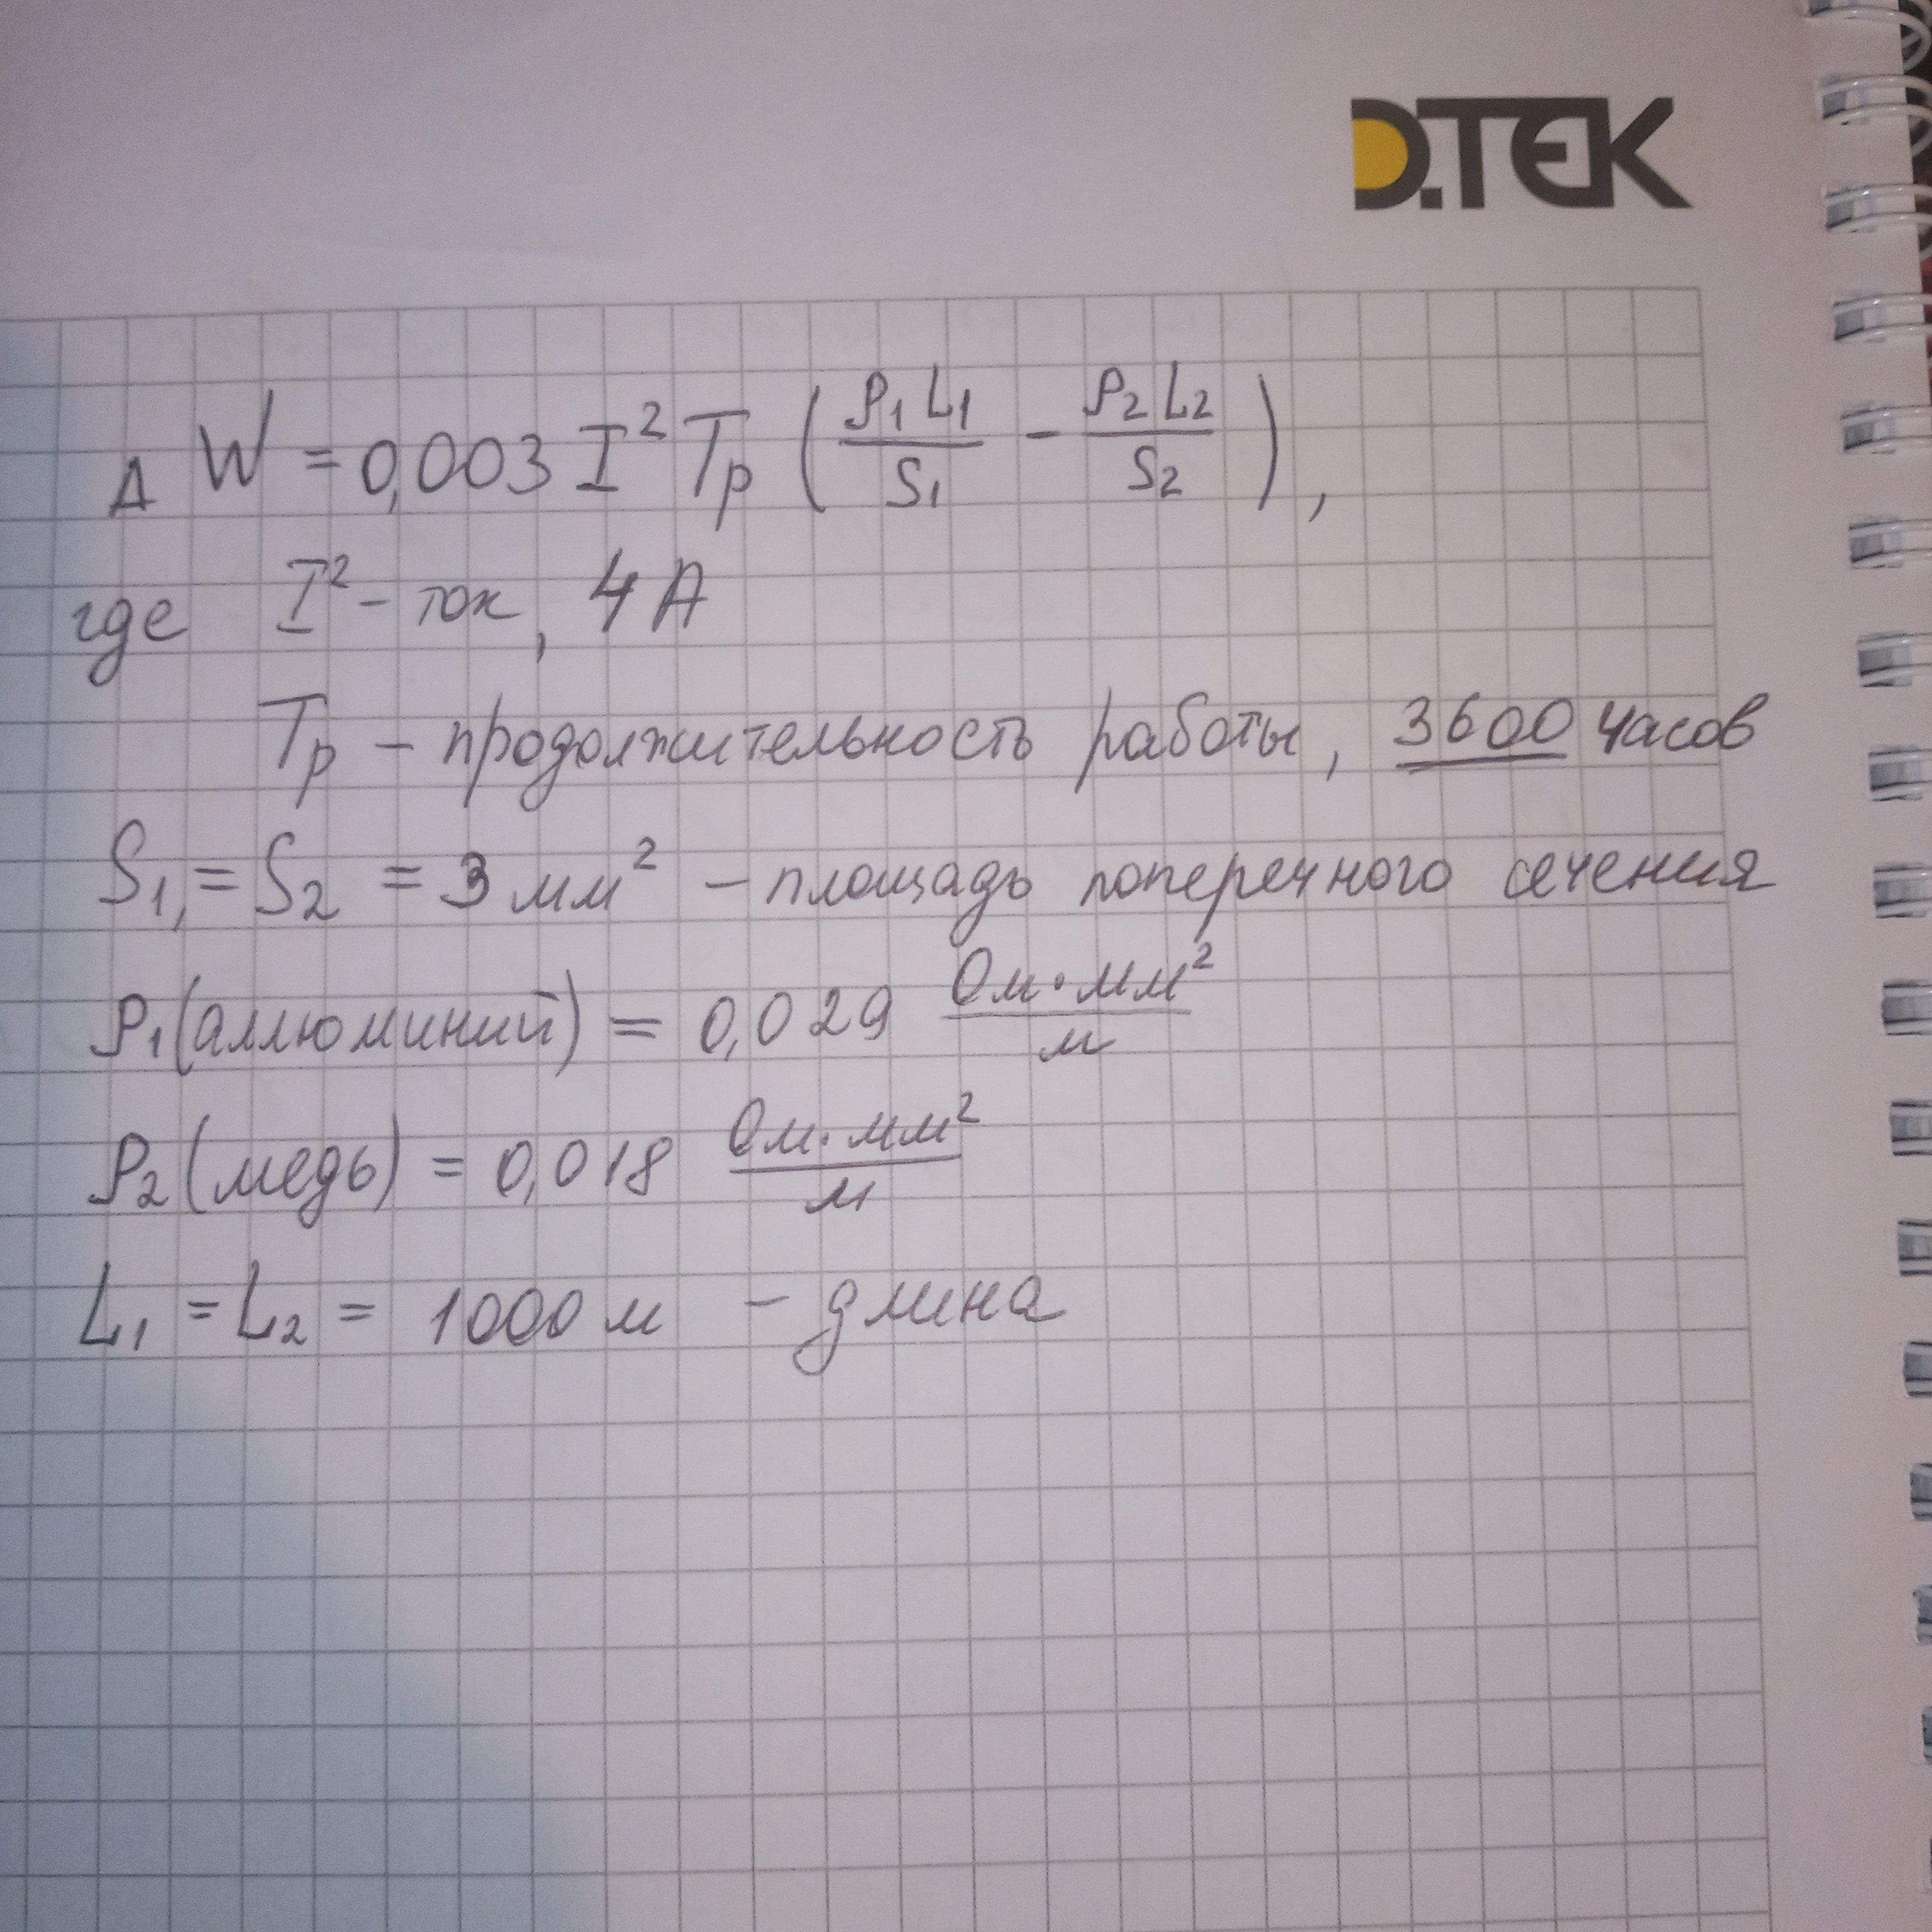 D.TEK
Δ W = 0,003 I² Tр (ρ₁ L₁ / S₁ - ρ₂ L₂ / S₂),
где I² - ток, 4 А
Tр - продолжительность работы, 3600 часов
S₁, = S₂ = 3 мм² - площадь поперечного сечения
ρ₁ (аллюминий) = 0,029 Ом·мм² / м
ρ₂ (медь) = 0,018 Ом·мм² / м
L₁ = L₂ = 1000 м - длина